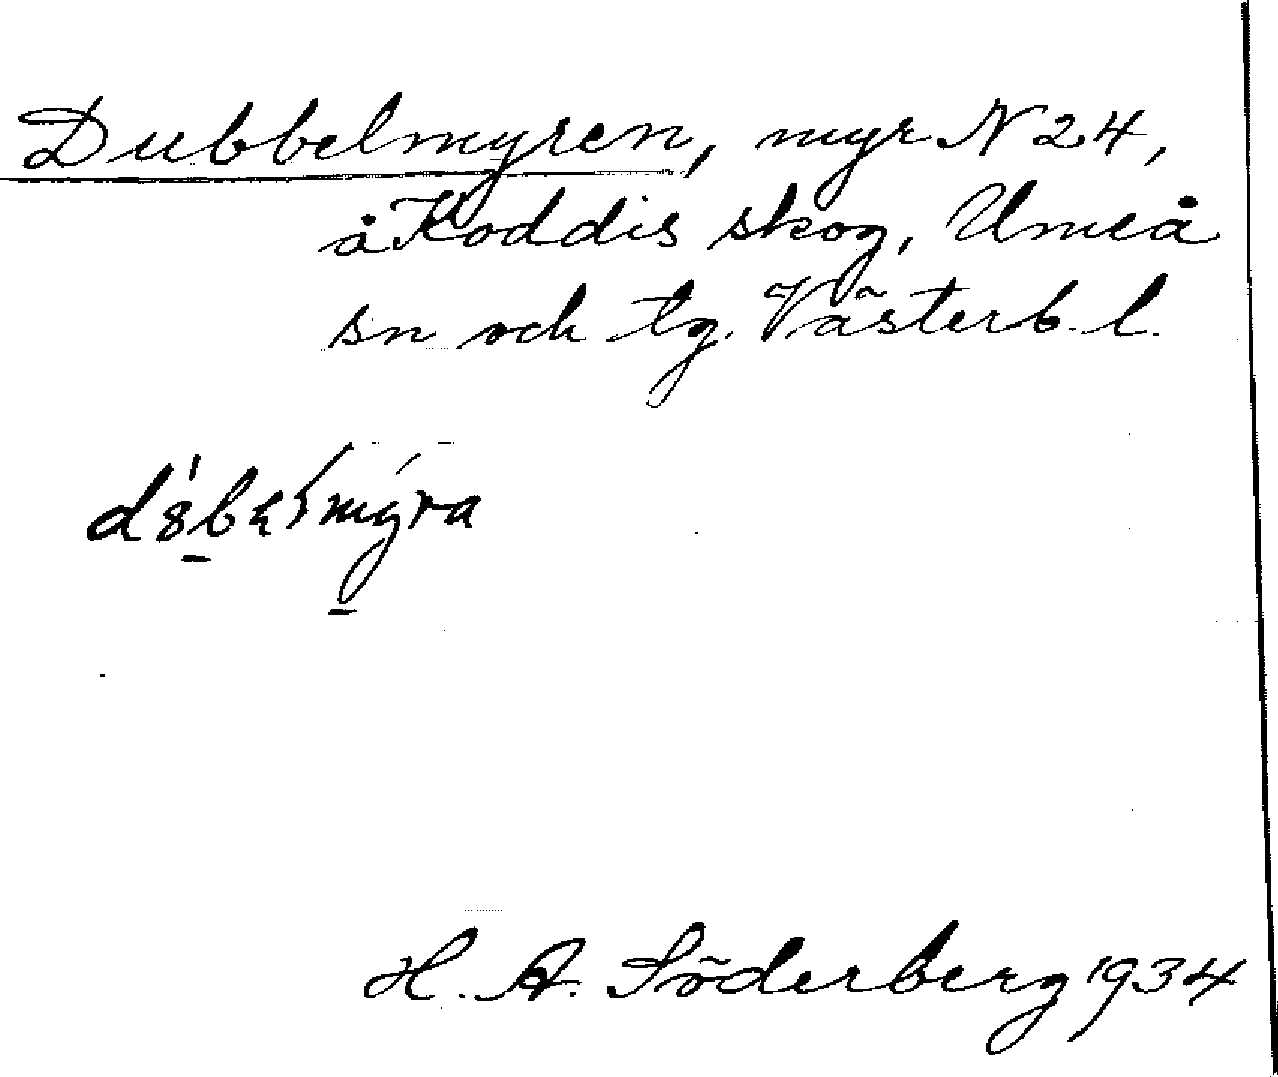 Dubbelmyren, myr N 24,
å Koddis skog, Umeå
sn och tg. Västerb. l.
H. A. Söderberg 1934